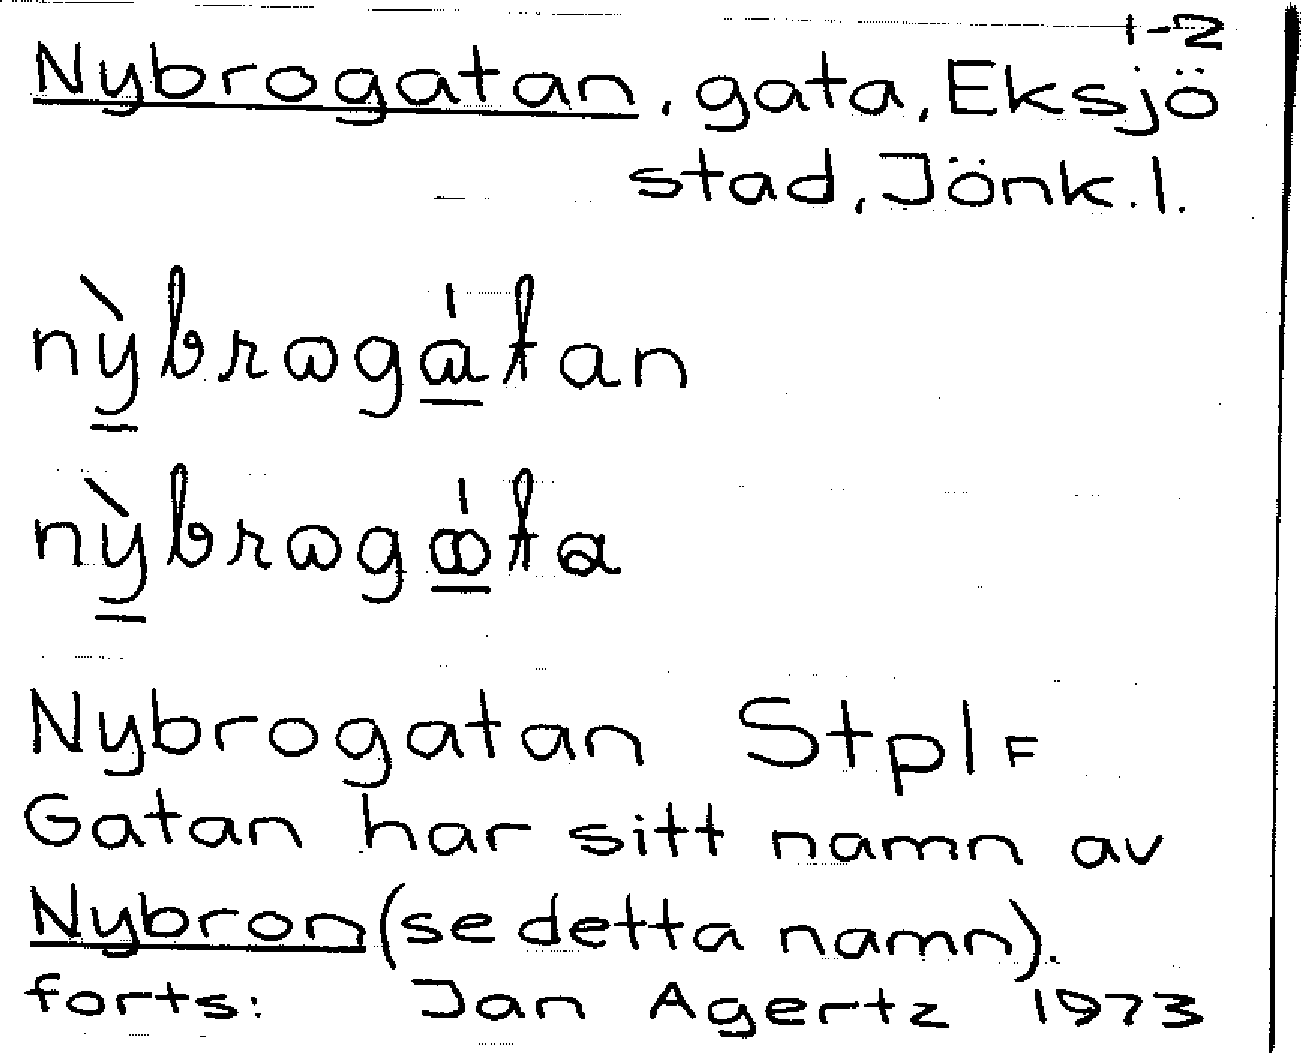 1-2
Nybrogatan, gata, Eksjö
stad, Jönk. l.
nỳbrωgátan
nỳbrωgω̇́ta
Nybrogatan Stpl F
Gatan har sitt namn av
Nybron (se detta namn).
forts: Jan Agertz 1973